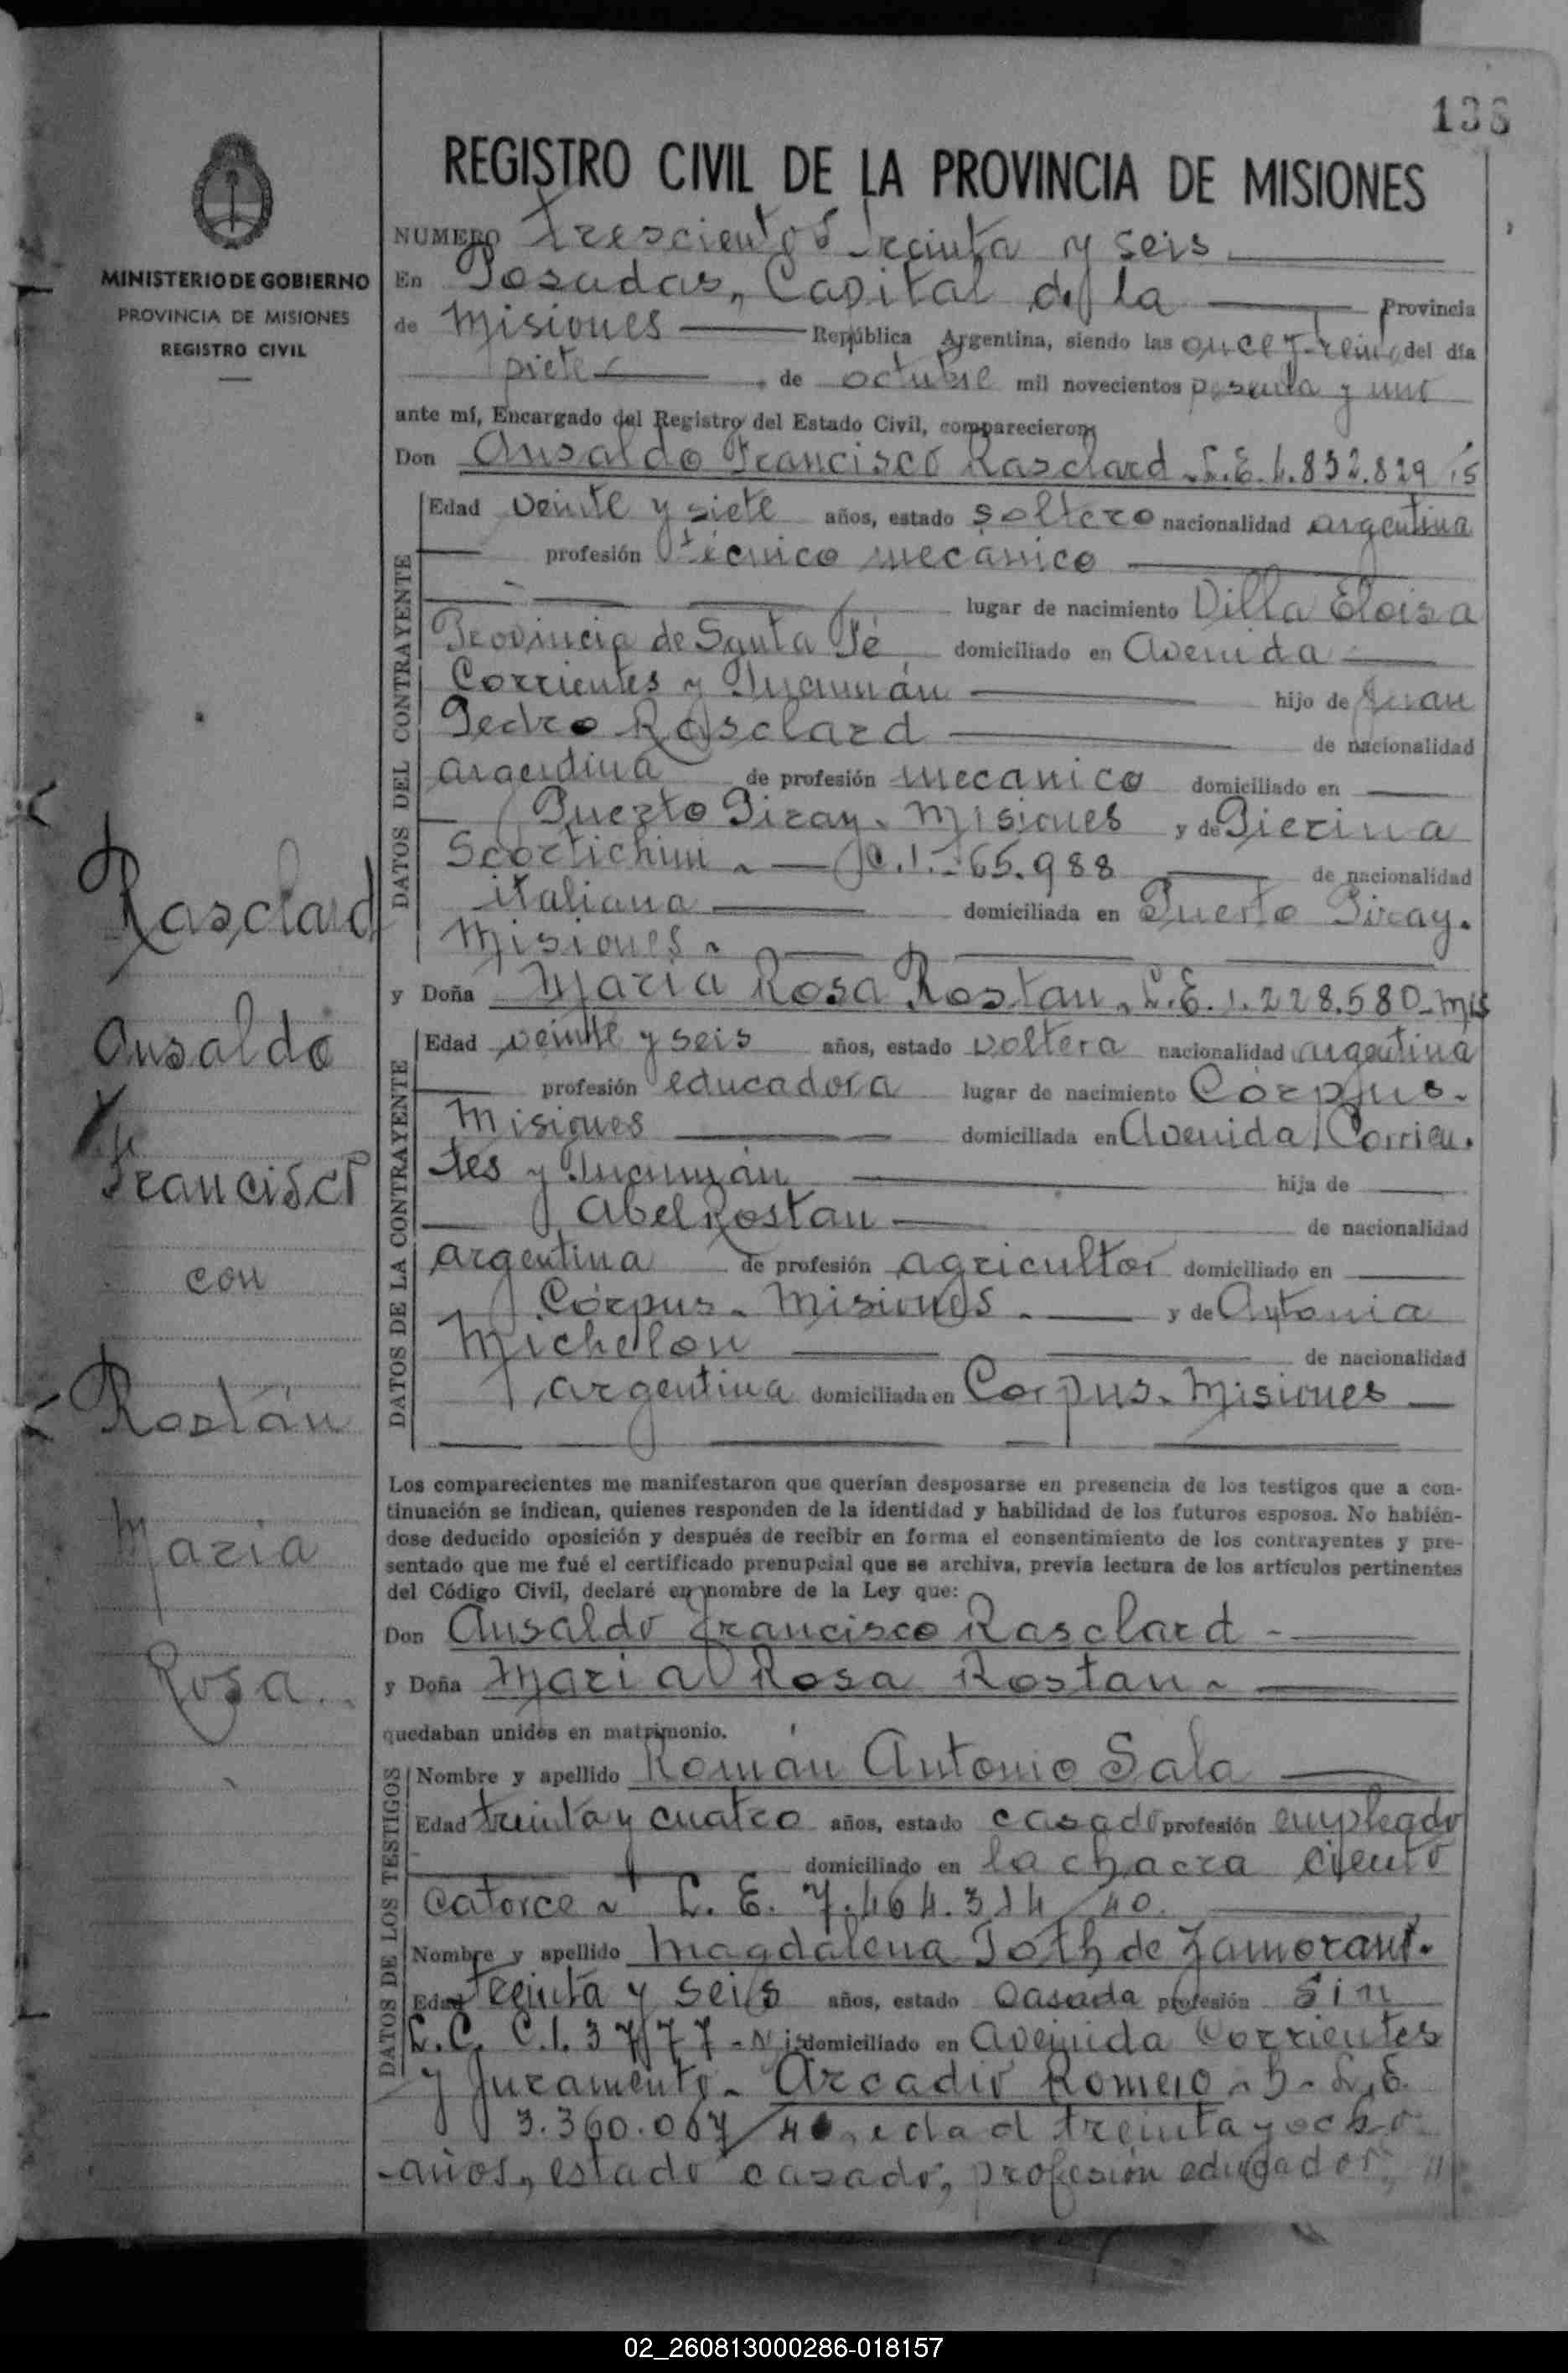 136
REGISTRO CIVIL DE LA PROVINCIA DE MISIONES
MINISTERIO DE GOBIERNO
PROVINCIA DE MISIONES
REGISTRO CIVIL
NUMERO trescientos treinta y seis
En Posadas, Capital de la Provincia
de Misiones República Argentina, siendo las once y treinta del día
siete de octubre mil novecientos sesenta y uno
ante mí, Encargado del Registro del Estado Civil, comparecieron
Don Ansaldo Francisco Rasclard L.E. 4.832.829
DATOS DEL CONTRAYENTE
Edad veinte y siete años, estado soltero nacionalidad argentina
profesión técnico mecánico
lugar de nacimiento Villa Eloisa
Provincia de Santa Fé domiciliado en Avenida
Corrientes y Tucumán hijo de Juan
Pedro Rasclard de nacionalidad
argentina de profesión mecanico domiciliado en
Puerto Piray. Misiones y de Pierina
Scortichini C.I. 65.988 de nacionalidad
italiana domiciliada en Puerto Piray.
Misiones.
y Doña Maria Rosa Rostan. L.E. 1.228.580-Mis
DATOS DE LA CONTRAYENTE
Edad veinte y seis años, estado soltera nacionalidad argentina
profesión educadora lugar de nacimiento Córpus.
Misiones domiciliada en Avenida Corrien.
tes y Tucumán hija de
Abel Rostan de nacionalidad
argentina de profesión agricultor domiciliado en
Córpus. Misiones. y de Antonia
Michelon de nacionalidad
argentina domiciliada en Corpus. Misiones
Los comparecientes me manifestaron que querían desposarse en presencia de los testigos que a con-
tinuación se indican, quienes responden de la identidad y habilidad de los futuros esposos. No habién-
dose deducido oposición y después de recibir en forma el consentimiento de los contrayentes y pre-
sentado que me fué el certificado prenupcial que se archiva, previa lectura de los artículos pertinentes
del Código Civil, declaré en nombre de la Ley que:
Don Ansaldo Francisco Rasclard
y Doña Maria Rosa Rostan
quedaban unidos en matrimonio.
DATOS DE LOS TESTIGOS
Nombre y apellido Román Antonio Sala
Edad treinta y cuatro años, estado casado profesión empleado
domiciliado en la chacra ciento
catorce L. E. 7.464.314/40.
Nombre y apellido Magdalena Toth de Zamorano.
Edad treinta y seis años, estado casada profesión sin
L.C. C.I. 37177 domiciliado en Avenida Corrientes
y Juramento. Arcadio Romero L.E.
3.360.067/4 edad treinta y ocho
años, estado casado, profesión educador,
Rasclard
Ansaldo
Francisco
con
Rostán
Maria
Rosa.
02_260813000286-018157